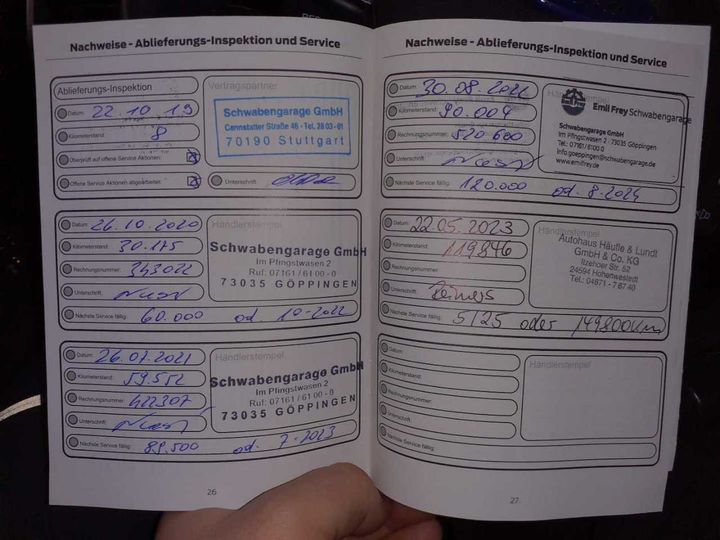 Nachweise - Ablieferungs-Inspektion und Service
Ablieferungs-Inspektion
Datum: 22.10.19
Kilometerstand: 8
Überprüft auf offene Service Aktionen:
Offene Service Aktionen abgearbeitet:
Vertragspartner
Schwabengarage GmbH
Cannstatter Straße 46 - Tel. 28 03 - 01
70190 Stuttgart
Unterschrift:
Datum: 26.10.2020
Kilometerstand: 30.175
Rechnungsnummer: 343022
Unterschrift:
Nächste Service fällig: 60.000 od 10-2022
Händlerstempel
Schwabengarage GmbH
Im Pfingstwasen 2
Ruf: 07161 / 61 00 - 0
73035 GÖPPINGEN
Datum: 26.07.2021
Kilometerstand: 59.552
Rechnungsnummer: 422307
Unterschrift:
Nächste Service fällig: 89.500 od. 7-2023
Händlerstempel
Schwabengarage GmbH
Im Pfingstwasen 2
Ruf: 07161 / 61 00 - 0
73035 GÖPPINGEN
26
Nachweise - Ablieferungs-Inspektion und Service
Datum: 30.08.2022
Kilometerstand: 90.004
Rechnungsnummer: 520600
Unterschrift:
Nächste Service fällig: 120.000 od. 8.2024
Emil Frey Schwabengarage
Schwabengarage GmbH
Im Pfingstwasen 2, 73035 Göppingen
Tel.: 07161/6100 0
info.goeppingen@schwabengarage.de
www.emilfrey.de
Datum: 22.05.2023
Kilometerstand: 119846
Rechnungsnummer:
Unterschrift: Reimers
Nächste Service fällig: 5/25 oder 149800km
Händlerstempel
Autohaus Häufle & Lundt
GmbH & Co. KG
Itzehoer Str. 52
24594 Hohenwestedt
Tel.: 04871 - 7 67 40
Datum:
Kilometerstand:
Rechnungsnummer:
Unterschrift:
Nächste Service fällig:
Händlerstempel
27